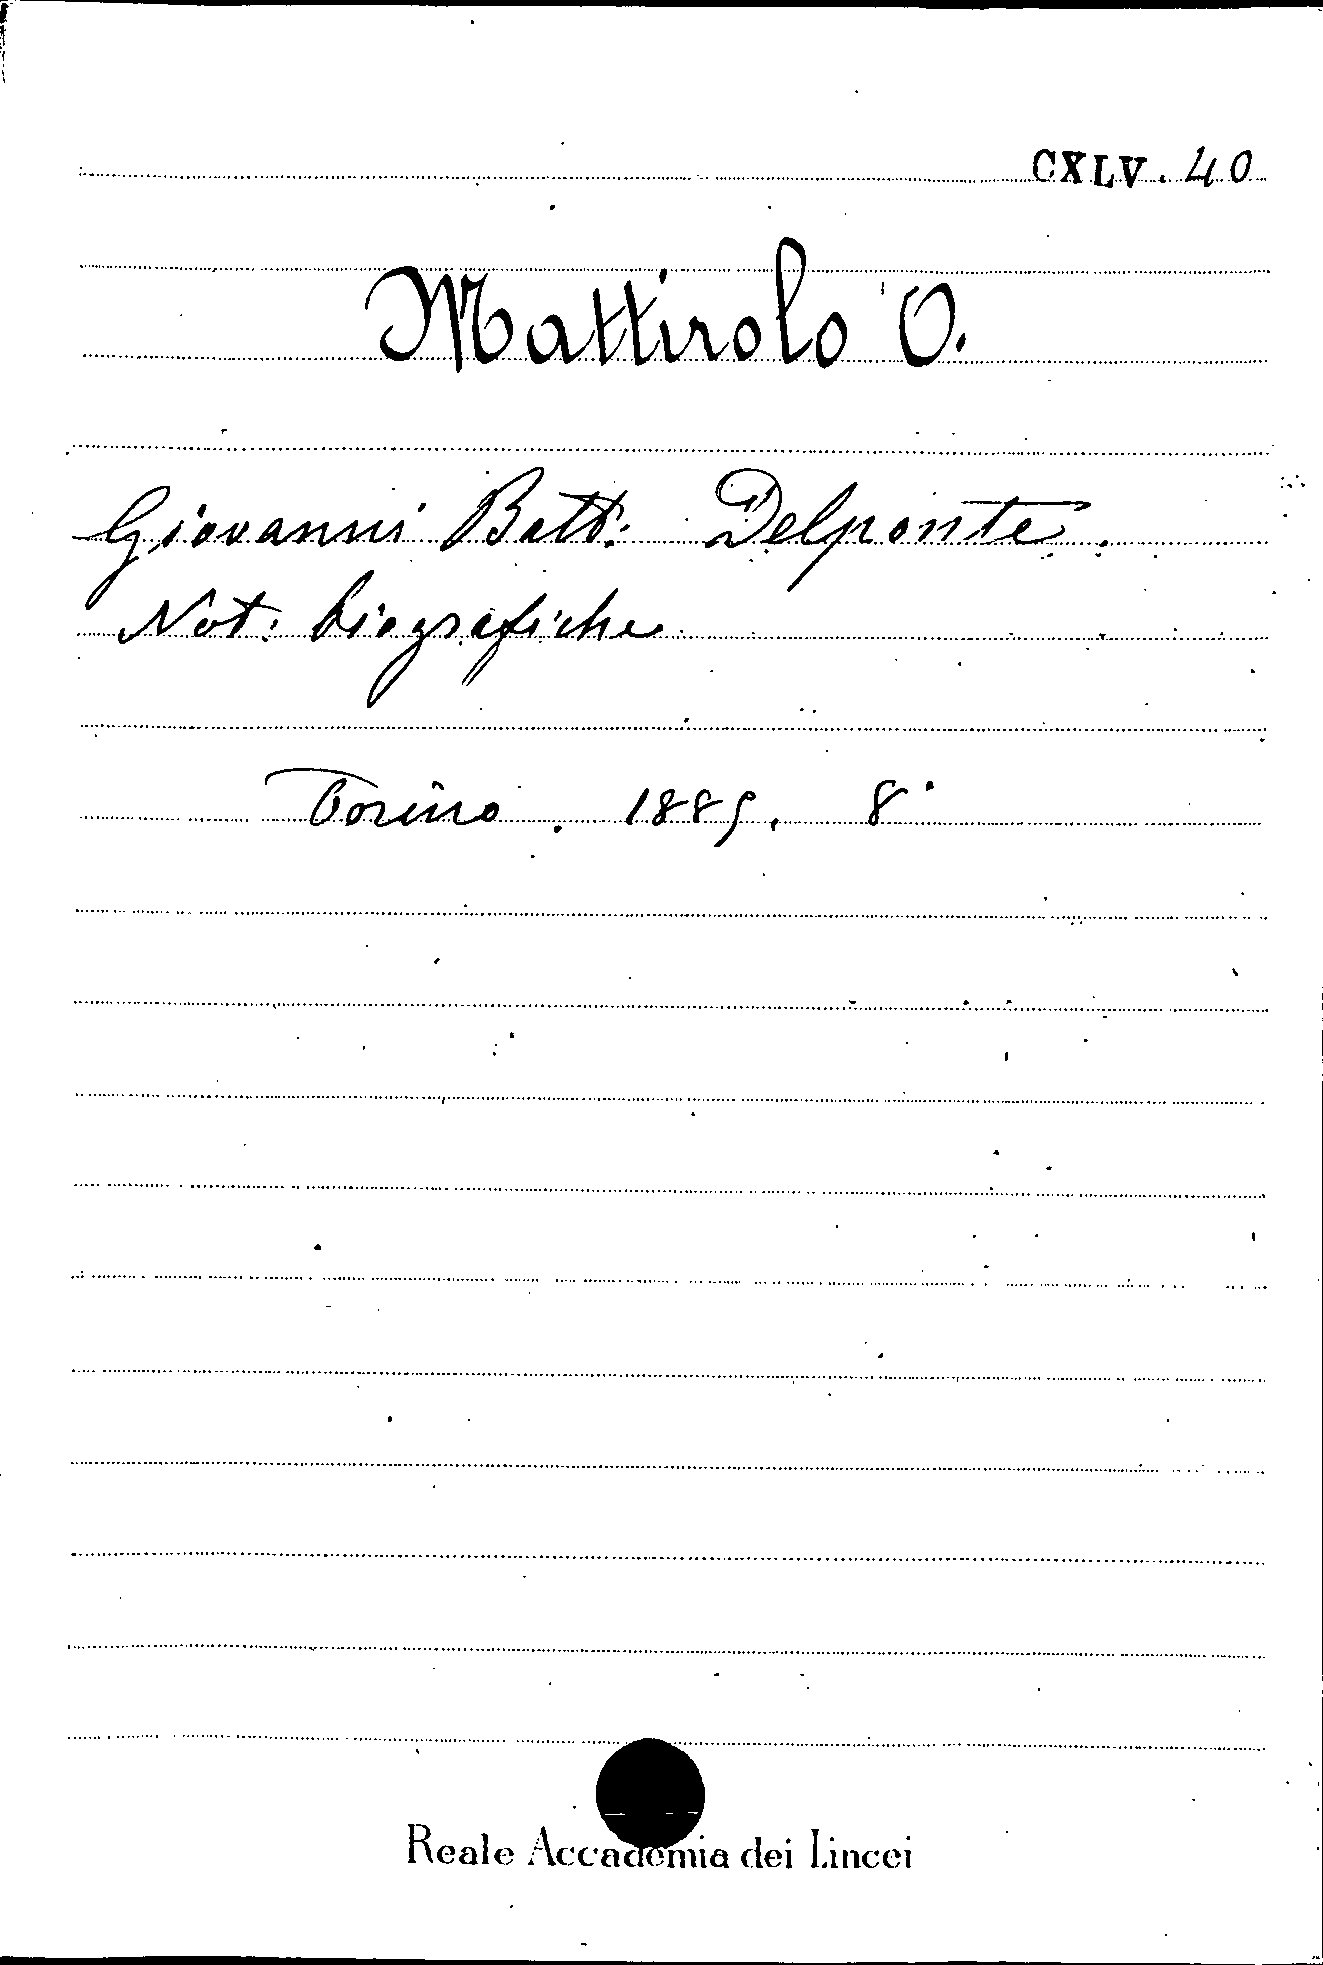 CXLV. 40
Mattirolo O.
Giovanni Batt. Delponte.
Not: biografiche
Torino. 1885. 8°
Reale Accademia dei Lincei